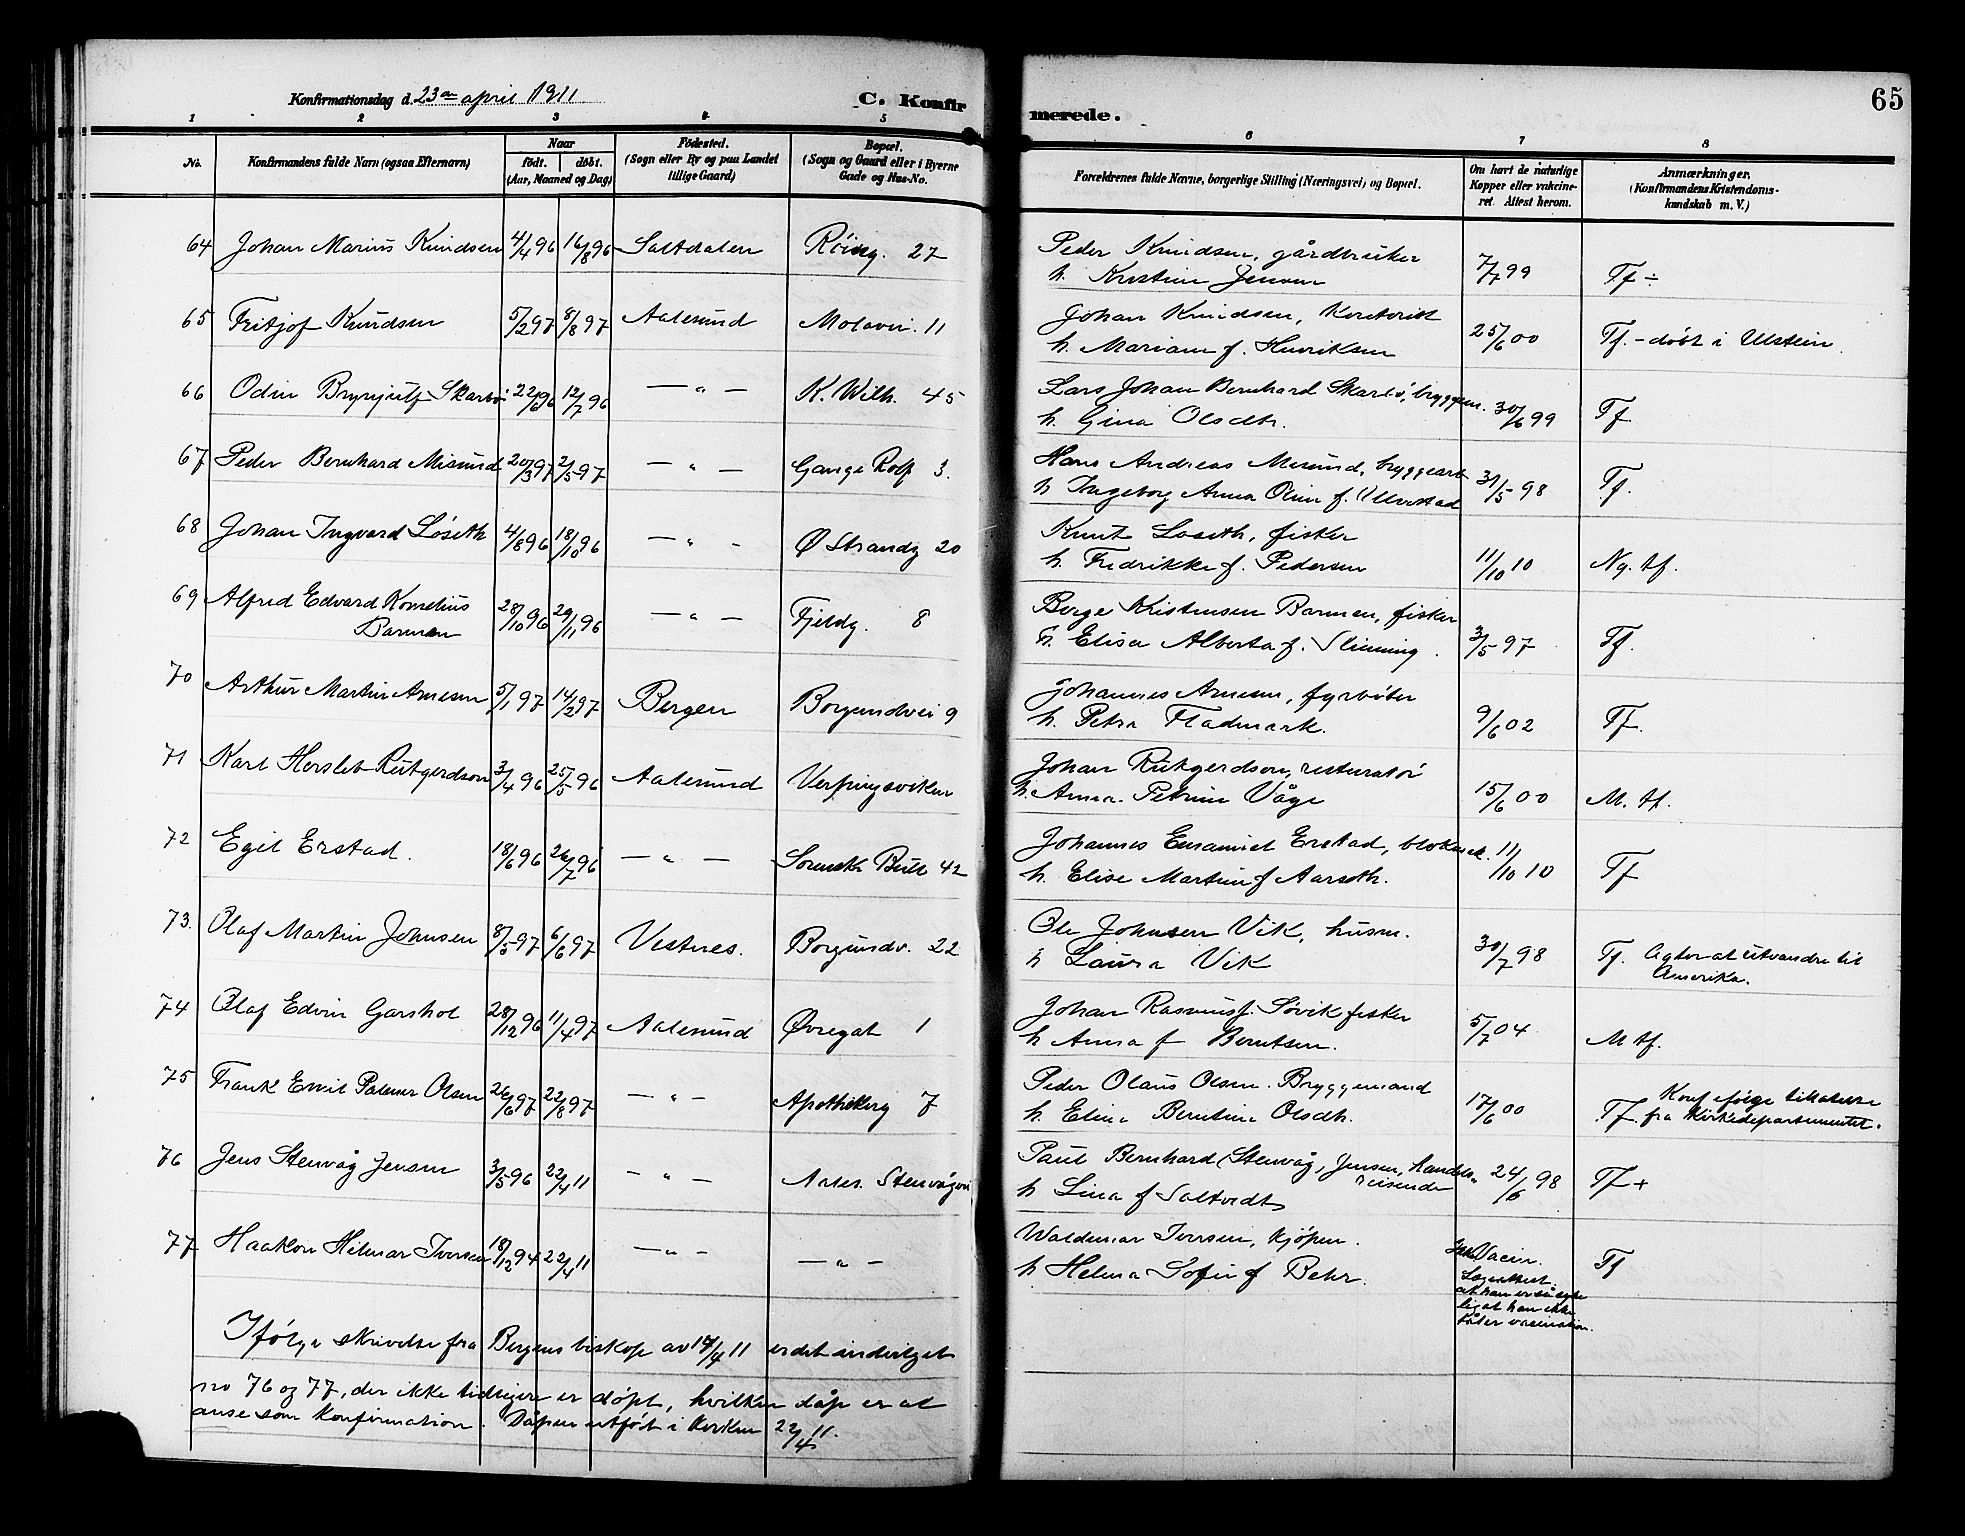 Konfirmationsdag d. 23de april 1911
C. Konfirmerede.
65
1 2 3 4 5 6 7 8
No. Konfirmandens fulde Navn (ogsaa Efternavn) Naar født. døbt. (Aar, Maaned og Dag) Fødested. (Sogn eller By og paa Landet tillige Gaard) Bopæl. (Sogn og Gaard eller i Byerne Gade og Hus-No. Forældrenes fulde Navne, borgerlige Stilling (Næringsvei) og Bopæl. Om havt de naturlige Kopper eller vakcineret. Attest herom. Anmærkninger. (Konfirmandens Kristendomskundskab m. V.)
64 Johan Marius Knudsen 4/4 96 16/8 96 Saltdalen Röisg. 27 Peder Knudsen, gårdbruker 7/7 99 Tf ÷
h. Kristine Jensen
65 Fritjof Knudsen 5/2 97 8/8 97 Aalesund Molovei. 11 Johan Knudsen, Kontorist 25/6 00 Tf. - döbt i Ulstein.
h. Mariane f. Henriksen
66 Odin Brynjulf Skarbö 22/6 96 12/7 96 — " — K. Wilh. 45 Lars Johan Bernhard Skarbö, bryggem. 30/6 99 Tf.
h. Gina Olsdtr.
67 Peder Bernhard Misund 20/3 97 2/5 97 — " — Gange Rolf 3. Hans Andreas Misund, bryggearb 31/5 98 Tf.
h Ingeborg Anna Oline f. Ulvestad
68 Johan Ingvard Löseth 4/8 96 18/10 96 — " — Ø Strandg 20 Knut Löseth, fisker 11/10 10 Ng. tf.
h. Fredrikke f. Pedersen
69 Alfred Edvard Kornelius Barmen 28/10 96 29/11 96 — " — Fjeldg. 8 Berge Kristensen Barmen, fisker 3/5 97 Tf.
h. Elisa Alberta f. Slinning.
70 Arthur Martin Arnesen 5/1 97 14/2 97 Bergen Borgundvei 9 Johannes Arnesen, fyrböter 9/6 02 Tf.
h. Petra Fladmark.
71 Karl Hersleb Rutgerdson 3/4 96 25/5 96 Aalesund Verpingsviken Johan Rutgerdson, resturatör 15/6 00 M. tf.
h. Anna Petrine Våge
72 Egil Erstad. 18/6 96 26/7 96 — " — Sörenskr Bull 42 Johannes Emanuel Erstad, blokmak. 11/10 10 Tf
h. Elise Martine f Aarseth.
73. Olaf Martin Johnsen 8/5 97 6/6 97 Vestnes. Borgundv. 22 Ole Johnsen Vik, husm. 30/7 98 Tf. Agter at utvandre til Amerika.
h Laura Vik
74 Olaf Edvin Garshol 28/12 96 11/4 97 Aalesund Øvregat 1 Johan Rasmus f. Søvik fisker 5/7 04. M tf.
h Anna f Berntsen.
75 Frank Emil Palmer Olsen 26/6 97 22/8 97 — " — Apothekerg 7 Peder Olaus Olsen. Bryggemand 17/6 00 Tf. Konf ifølge tilladelse fra Kirkedepartementet.
h. Elina Berntina Olsdtr.
76 Jens Stenvåg Jensen 3/5 96 22/4 11 — " — Aales. Stenvågvei Paul Bernhard (Stenvåg) Jensen, handelsreisende 24/6 98 Tf +
h Lina f Saltvedt
77 Haakon Hilmar Iversen 18/12 94 22/4 11 — " — — " — Waldemar Iversen, kjöpm. Ikke Vacin. Lægeattest at han er så sykelig at han ikke tåler vacination. Tf
h Helma Sofie f Behr.
Ifölge skrivelse fra Bergens biskop av 17/4 11 er det indvilget
no 76 og 77, der ikke tidligere er döpt, hvilken dåp er at
anse som konfirmation. Dåpen utfört i kirken 22/4 11.